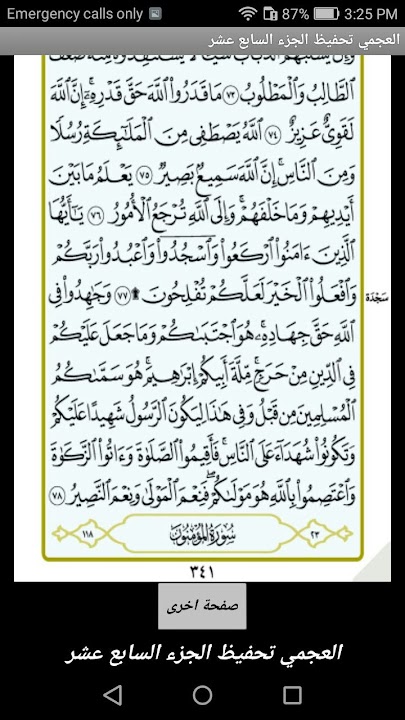 Emergency calls only 87% 3:25 PM
العجمي تحفيظ الجزء السابع عشر
ٱلطَّالِبُ وَٱلْمَطْلُوبُ ﴿٧٣﴾ مَا قَدَرُوا۟ ٱللَّهَ حَقَّ قَدْرِهِۦٓ ۗ إِنَّ ٱللَّهَ
لَقَوِىٌّ عَزِيزٌ ﴿٧٤﴾ ٱللَّهُ يَصْطَفِى مِنَ ٱلْمَلَـٰٓئِكَةِ رُسُلًا
وَمِنَ ٱلنَّاسِ ۚ إِنَّ ٱللَّهَ سَمِيعٌۢ بَصِيرٌ ﴿٧٥﴾ يَعْلَمُ مَا بَيْنَ
أَيْدِيهِمْ وَمَا خَلْفَهُمْ ۗ وَإِلَى ٱللَّهِ تُرْجَعُ ٱلْأُمُورُ ﴿٧٦﴾ يَـٰٓأَيُّهَا
ٱلَّذِينَ ءَامَنُوا۟ ٱرْكَعُوا۟ وَٱسْجُدُوا۟ وَٱعْبُدُوا۟ رَبَّكُمْ
وَٱفْعَلُوا۟ ٱلْخَيْرَ لَعَلَّكُمْ تُفْلِحُونَ ۩ ﴿٧٧﴾ وَجَـٰهِدُوا۟ فِى
سَجْدَة
ٱللَّهِ حَقَّ جِهَادِهِۦ ۚ هُوَ ٱجْتَبَىٰكُمْ وَمَا جَعَلَ عَلَيْكُمْ
فِى ٱلدِّينِ مِنْ حَرَجٍ ۚ مِّلَّةَ أَبِيكُمْ إِبْرَٰهِيمَ ۚ هُوَ سَمَّىٰكُمُ
ٱلْمُسْلِمِينَ مِن قَبْلُ وَفِى هَـٰذَا لِيَكُونَ ٱلرَّسُولُ شَهِيدًا عَلَيْكُمْ
وَتَكُونُوا۟ شُهَدَآءَ عَلَى ٱلنَّاسِ ۚ فَأَقِيمُوا۟ ٱلصَّلَوٰةَ وَءَاتُوا۟ ٱلزَّكَوٰةَ
وَٱعْتَصِمُوا۟ بِٱللَّهِ هُوَ مَوْلَىٰكُمْ ۖ فَنِعْمَ ٱلْمَوْلَىٰ وَنِعْمَ ٱلنَّصِيرُ ﴿٧٨﴾
٢٣ سُورَةُ المُؤْمِنُونَ ١١٨
٣٤١
صفحة اخرى
العجمي تحفيظ الجزء السابع عشر